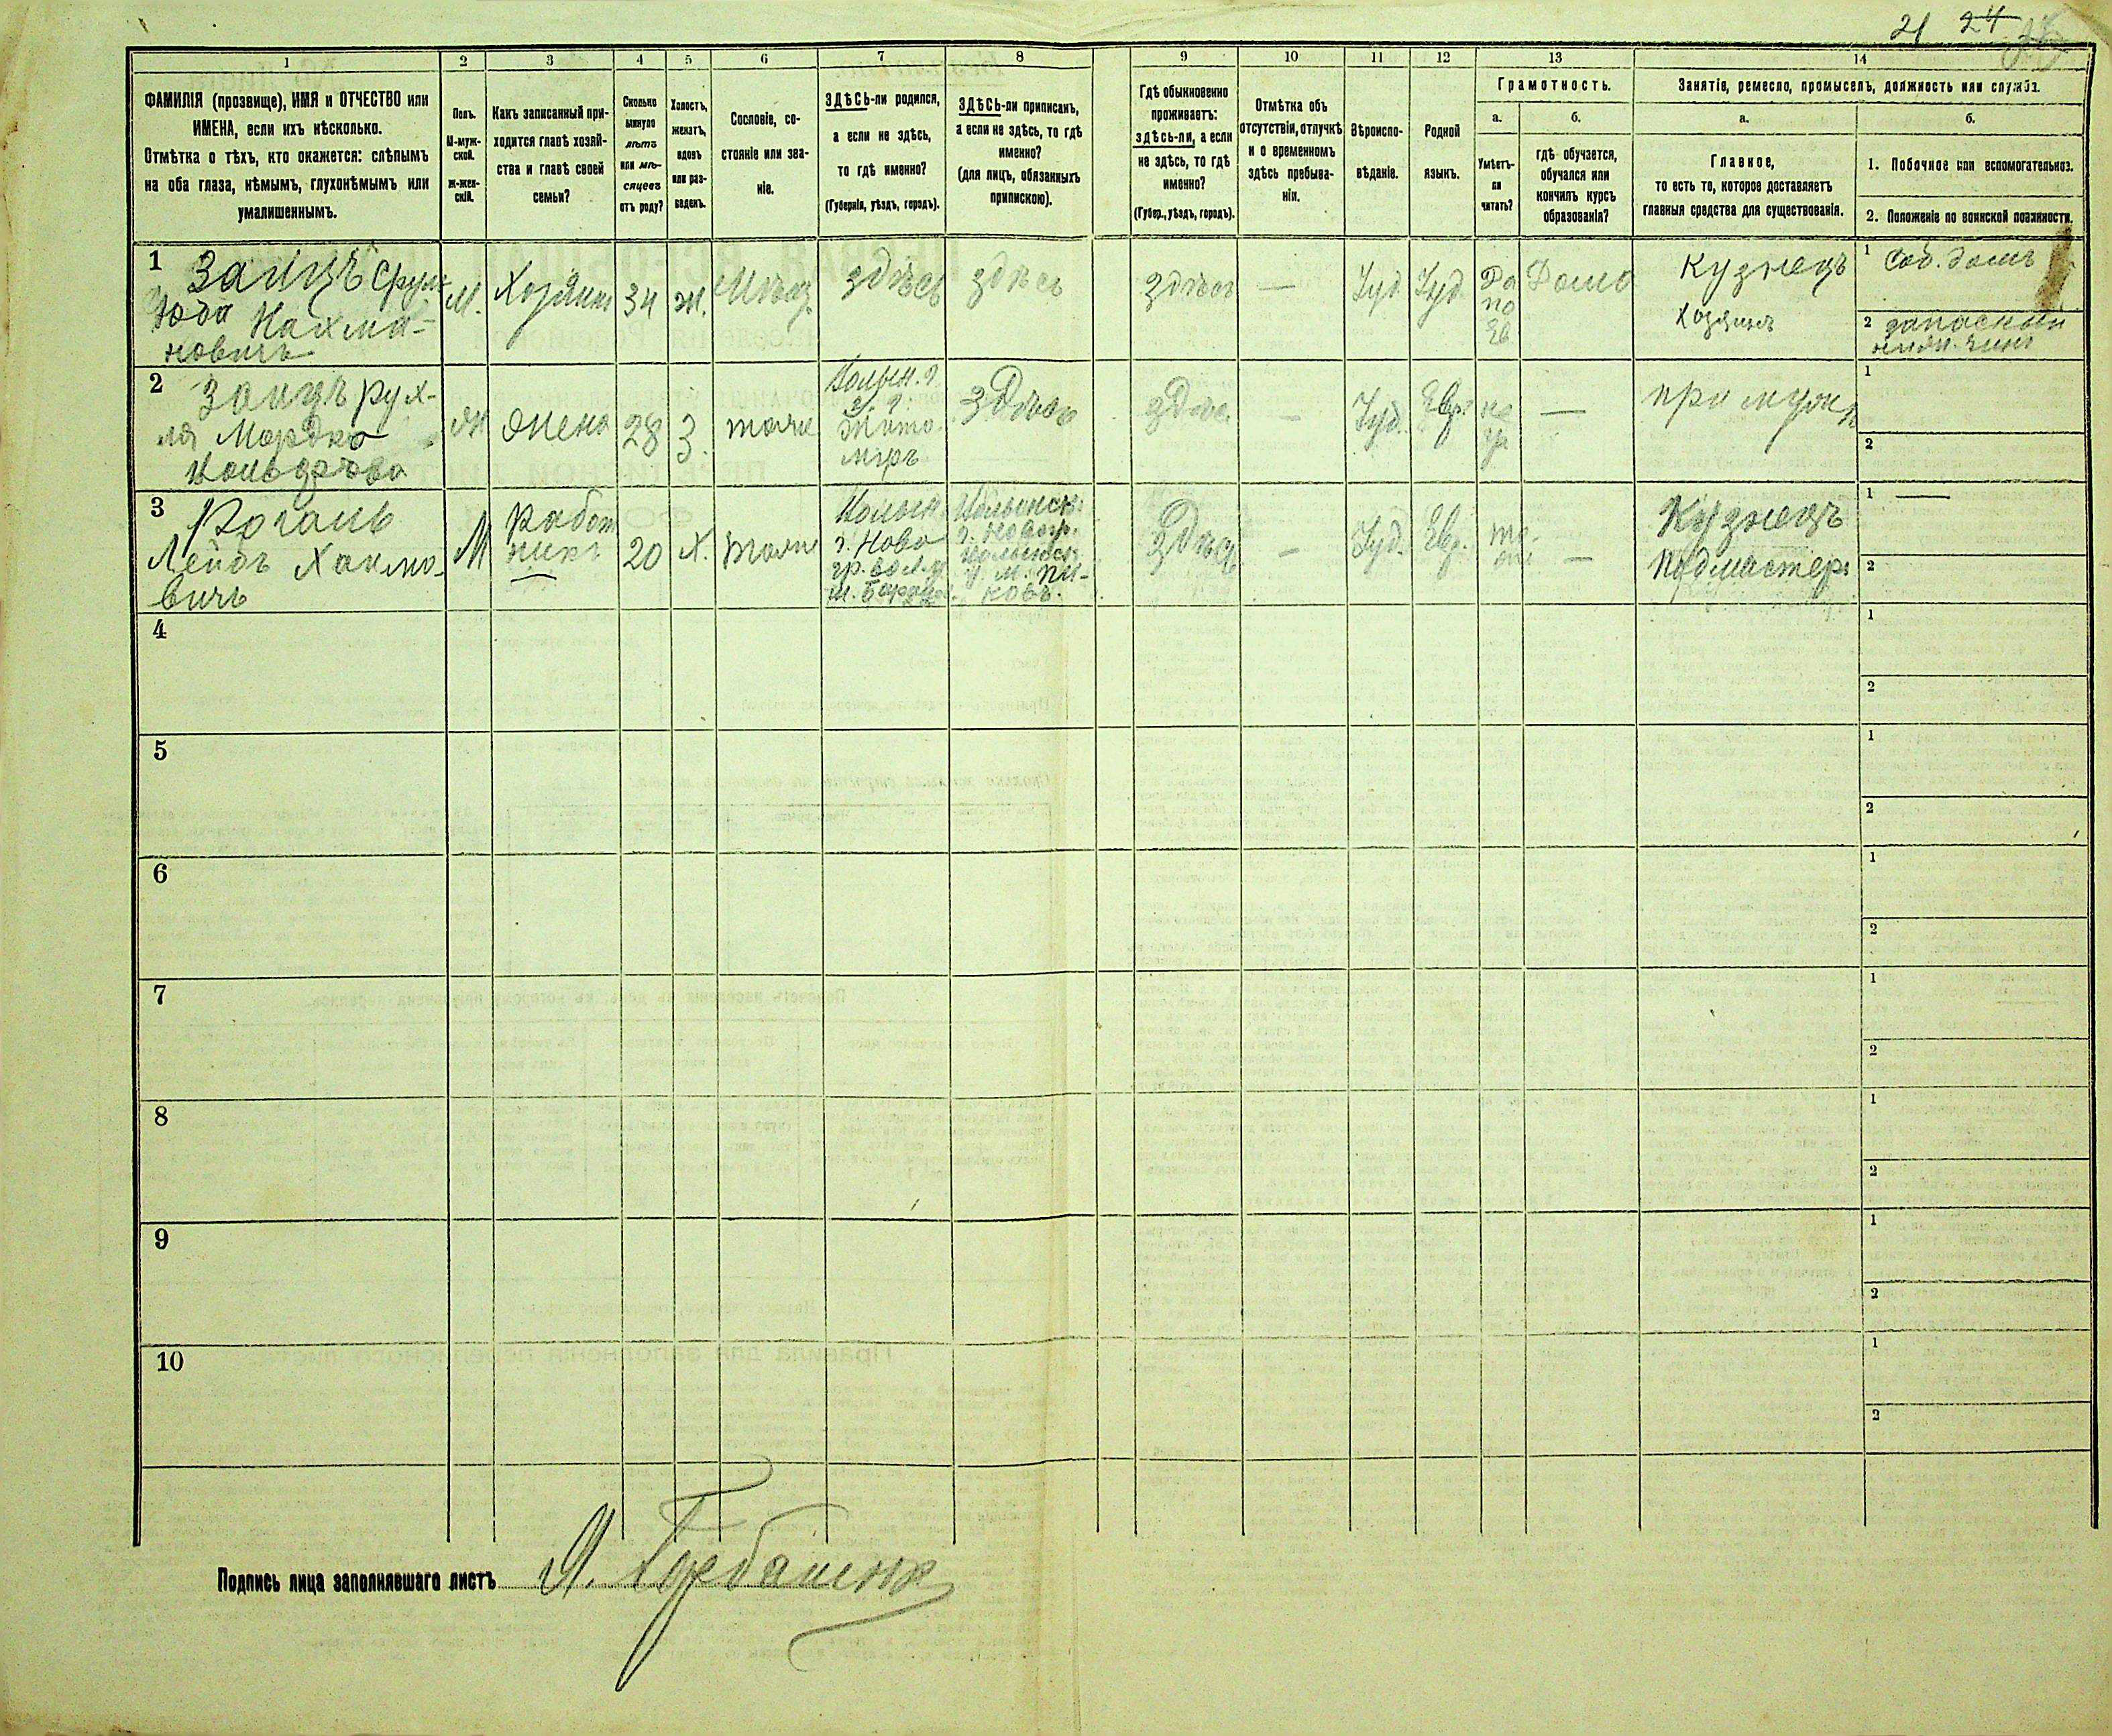 21 24
1 2 3 4 5 6 7 8 9 10 11 12 13 14
ФАМИЛІЯ (прозвище), ИМЯ и ОТЧЕСТВО или
ИМЕНА, если ихъ нѣсколько.
Отмѣтка о тѣхъ, кто окажется: слѣпымъ
на оба глаза, нѣмымъ, глухонѣмымъ или
умалишеннымъ.
Полъ.
М-муж-
ской.
Ж-жен-
скій.
Какъ записанный при-
ходится главѣ хозяй-
ства и главѣ своей
семьи?
Сколько
минуло
лѣтъ
или мѣ-
сяцевъ
отъ роду?
Холостъ,
женатъ,
вдовъ
или раз-
веденъ.
Сословіе, со-
стояніе или зва-
ніе.
ЗДѢСЬ-ли родился,
а если не здѣсь,
то гдѣ именно?
(Губернія, уѣздъ, городъ).
ЗДѢСЬ-ли приписанъ,
а если не здѣсь, то гдѣ
именно?
(для лицъ, обязанныхъ
припискою).
Гдѣ обыкновенно
проживаетъ:
здѣсь-ли, а если
не здѣсь, то гдѣ
именно?
(Губер., уѣздъ, городъ).
Отмѣтка объ
отсутствіи, отлучкѣ
и о временномъ
здѣсь пребыва-
ніи.
Вѣроиспо-
вѣданіе.
Родной
языкъ.
Грамотность.
а.
Умѣетъ-
ли
читать?
б.
гдѣ обучается,
обучался или
кончилъ курсъ
образованія?
Занятіе, ремесло, промыселъ, должность или служба.
а.
Главное,
то есть то, которое доставляетъ
главныя средства для существованія.
б.
1. Побочное или вспомогательное.
2. Положеніе по воинской повинности.
1 Заицъ Срул
Нахма-
новичъ
М.
Хозяинъ
34
ж.
Мѣщ.
здѣсь
здѣсь
здѣсь
—
Іуд.
Іуд.
Да
по
Ев
Дома
Кузнецъ
Хозяинъ
1 Соб. домъ
2 запасный
нижн. чинъ
2 Заицъ Рух-
ля Мордко
Ж
жена
28
З.
тоже
Волын. г.
Жито-
міръ
здѣсь
здѣсь
—
Іуд.
Евр.
—
при мужѣ
1
2
3 Рогань
Лейбъ Хаимо-
вичъ
М
Работ
никъ
20
Х.
тоже
Волын.
г. Ново
гр. вол. у
м.
Волынск.
г. Новогр.
волынск.
у. м. Пи-
ковъ.
здѣсь
—
Іуд.
Евр.
—
Кузнецъ
Подмастер.
1 —
2
4
1
2
5
1
2
6
1
2
7
1
2
8
1
2
9
1
2
10
1
2
Подпись лица заполнявшаго листъ